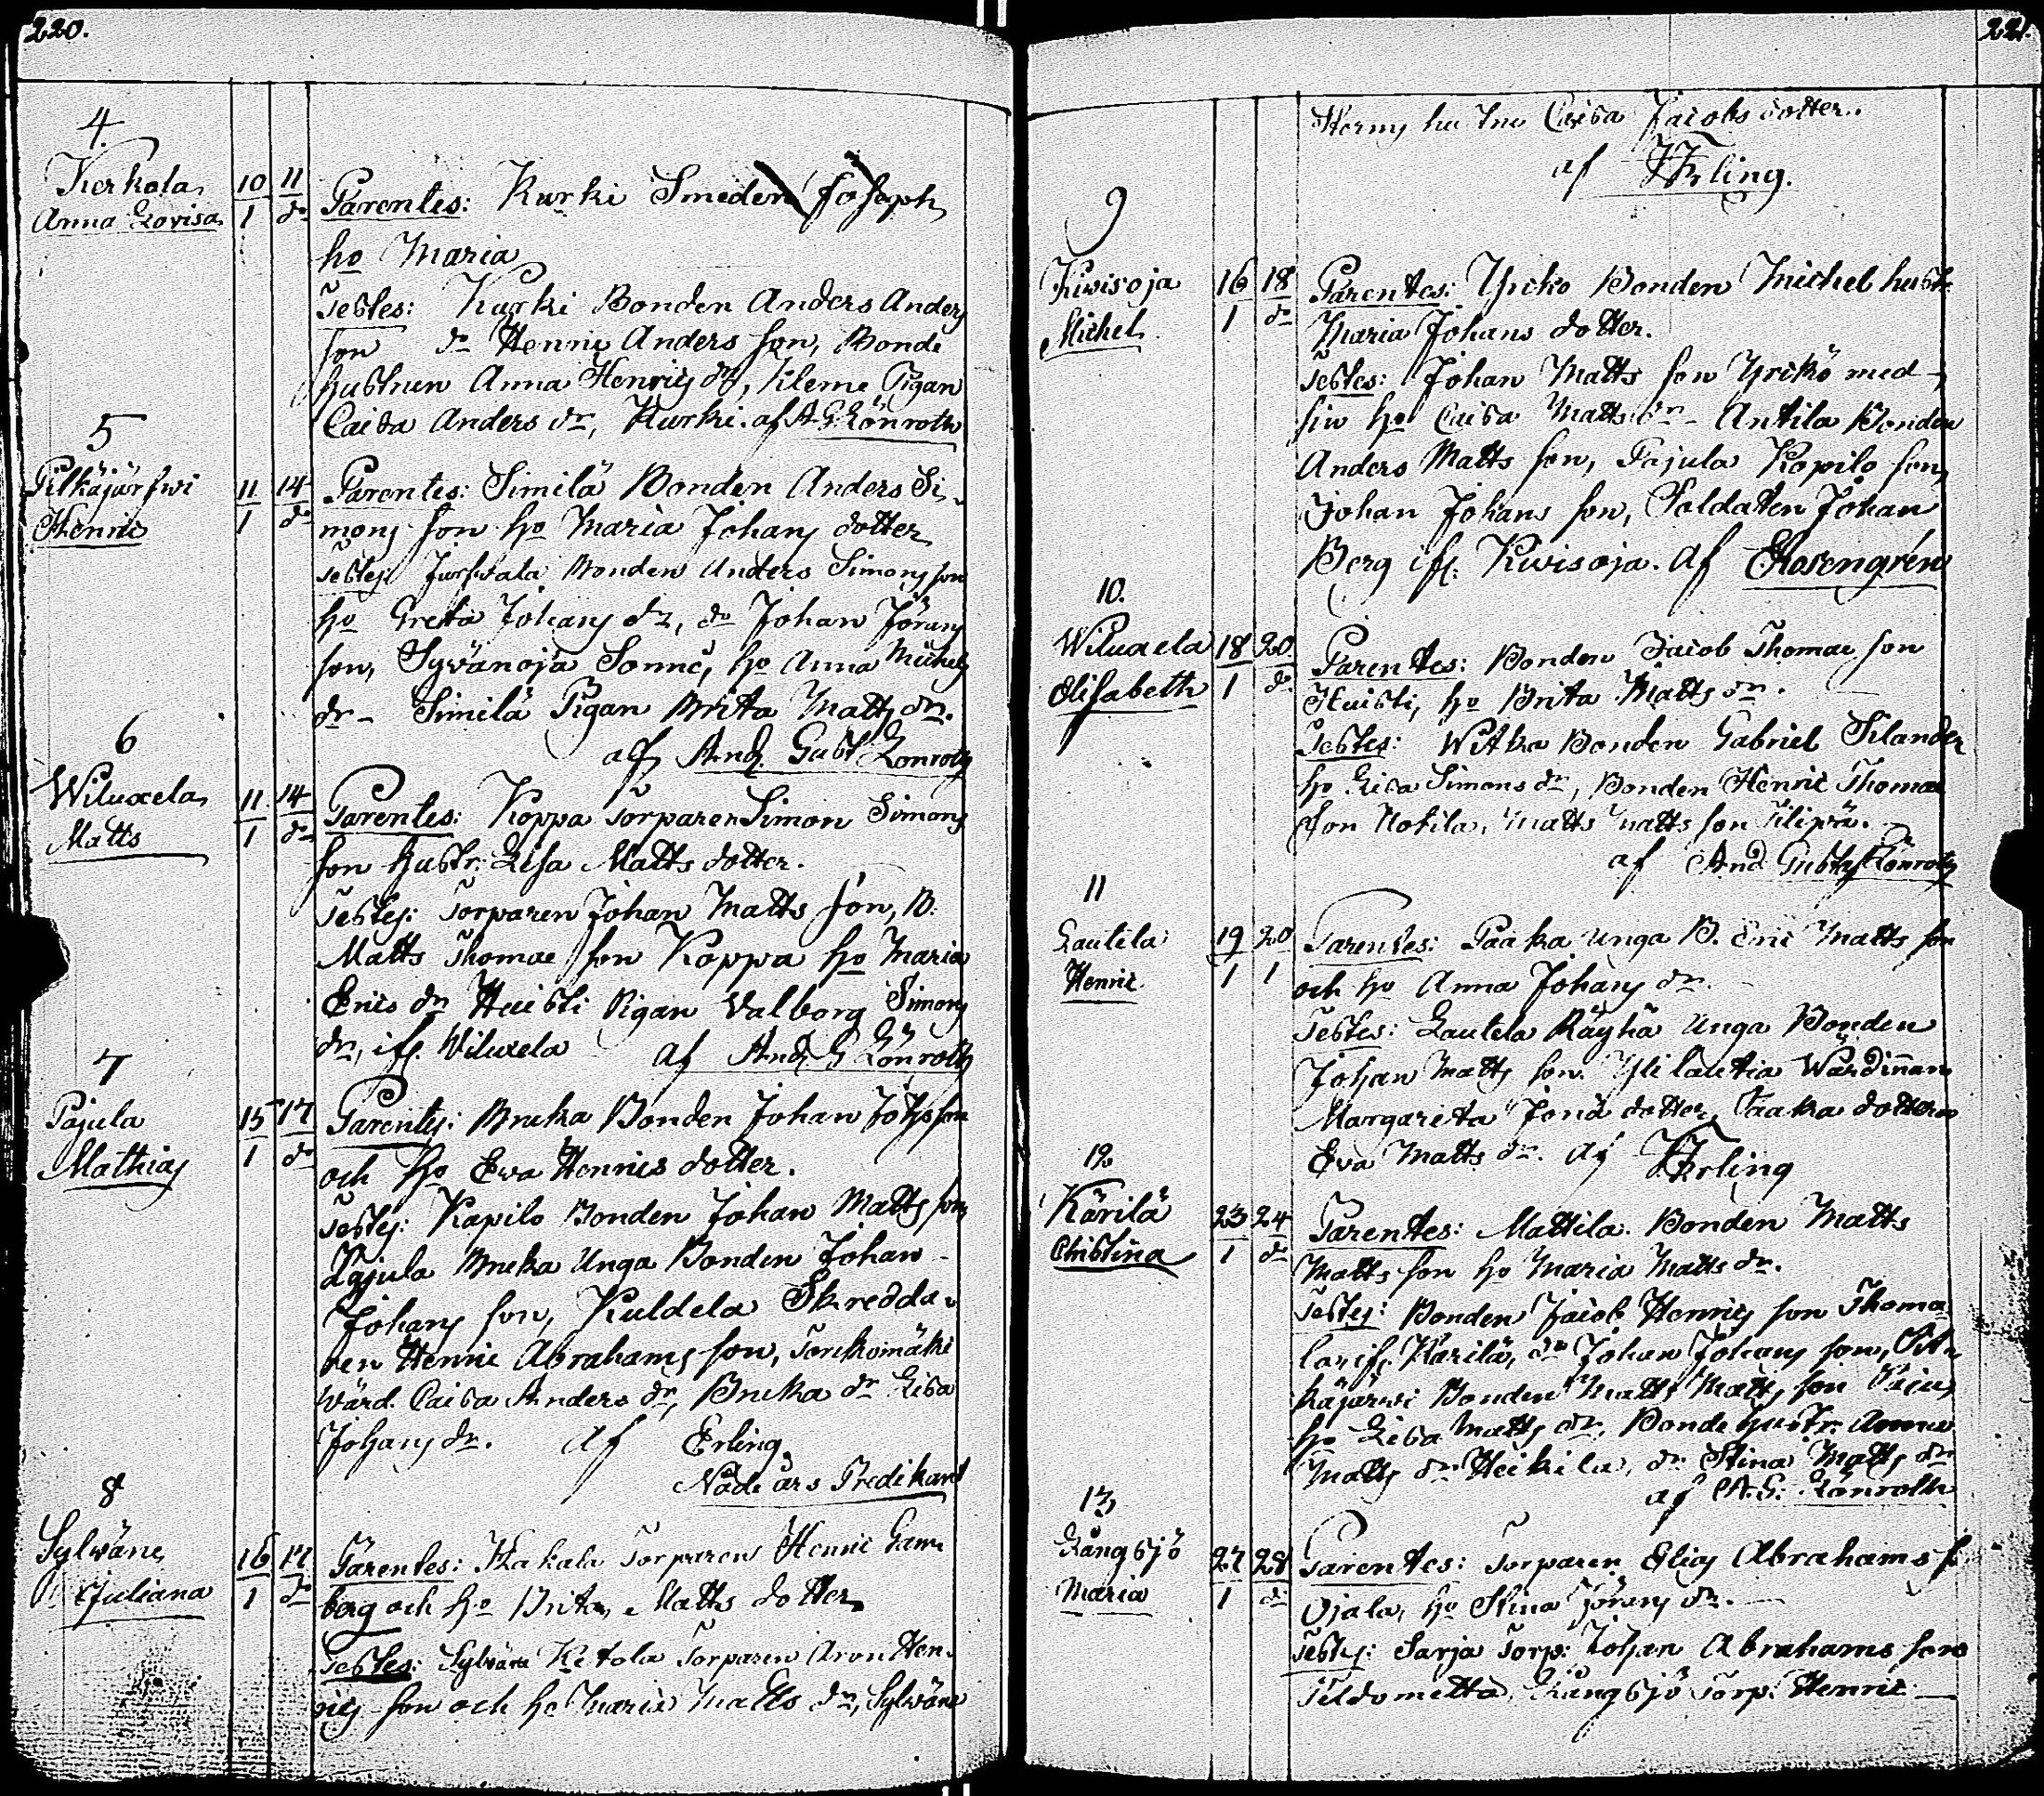 220.
4.
Kerkola 10 11 Parentes: Kurki Smeden Joseph
Anna Lovisa 1 do
ho Maria
Testes: Kurki Bonden Anders Anders
son do Henric Anders son, Bonde
hustrun Anna Henrics dr, Kleme Pigan
Caisa Anders dr, Kurki. af A G Lönroth
5
Pilkäjärfwi 11 14 Parentes: Similä Bonden Anders Si-
Henric 1 do mons son ho Maria Johans dotter
Testes: Bonden Anders Simons son
ho Greta Johans dr, do Johan Jörans
son, Sywänoja Sonne, ho Anna Michels
dr - Similä Pigan Brita Matts dr.
af And. Gust Lönroth
6
Wiluxela 11 14 Parentes: Koppa Torparen Simon Simons
Matts 1 do son hustr: Lisa Matts dotter.
Testes: Torparen Johan Matts son, B.
Matts Thomae son Koppa ho Maria
Erics dr Huisti Pigan Valborg Simons
dr, ifr. Wiluxela af And G Lönroth
7
Pajula 15 17 Parentes: Bruka Bonden Johan Johs son
Mathias 1 do och ho Ewa Henrics dotter.
Testes: Kapilo Bonden Johan Matts son,
Pajula Bruka Unga Bonden Johan
Johans son, Kuldela Skredda-
ren Henric Abrahams son, Torikomäki
Wärd. Caisa Anders dr, Bruka dr Lisa
Johans dr. af Erling
Nådeårs Predikant
8
Sylwäne 16 17 Parentes: Kakala Torparen Henric Gam
Juliana 1 do berg och ho Brita Matts dotter
Testes: Sylwäne Ketola Torparen Aron Hen-
rics son och ho Maria Matts dr, Sylwäne
221.
Caisa Jacobs dotter.
af Erling.
9
Kiwisoja 16 18 Parentes: Yrckö Bonden Michel hustr
Michel 1 do Maria Johans dotter.
Testes: Johan Matts son Yrckö med
sin ho Caisa Matts dr - Antila Bonden
Anders Matts son, Pajula Kopilo son,
Johan Johans son, Soldaten Johan
Berg ifr. Kiwisoja. af Rosengrén
10.
Wiluxela 18 20 Parentes: Bonden Jacob Thomae son
Elisabeth 1 do Huisti, ho Brita Matts dr.
Testes: Witka Bonden Gabriel Silander
ho Lisa Simons dr, Bonden Henric Thomae
son Nokila, Matts Matts son Filipä.
af And Gustaf Lönroth
11
Lautela 19 20 Parentes: Paaka Unga B. Eric Matts son
Henric 1 1 och ho Anna Johans dr.
Testes: Lautela Räyhä Unga Bonden
Johan Matts son. Wärdinnan
Margareta Jonä dotter, Paaka dottern
Eva Matts dr. af Erling
12
Kärilä 23 24 Parentes: Mattila Bonden Matts
Christina 1 do Matts son ho Maria Matts dr.
Testes: Bonden Jacob Henrics son Thoma
la ifr. Karilä, do Johan Johans son, Pit-
käjärwi Bonden Matts Matts son
ho Lisa Matts dr, Bonde hustr. Anna
Matts dr Heikila, do Stina Matts dr
af A. G. Lönroth
13
Långsjö 27 28 Parentes: Torparen Elias Abrahams s.
Maria 1 do Ojala, ho Stina Jörans dr.
Testes: Sarja Torp: Johan Abrahams son
Långsjö Torp: Henric